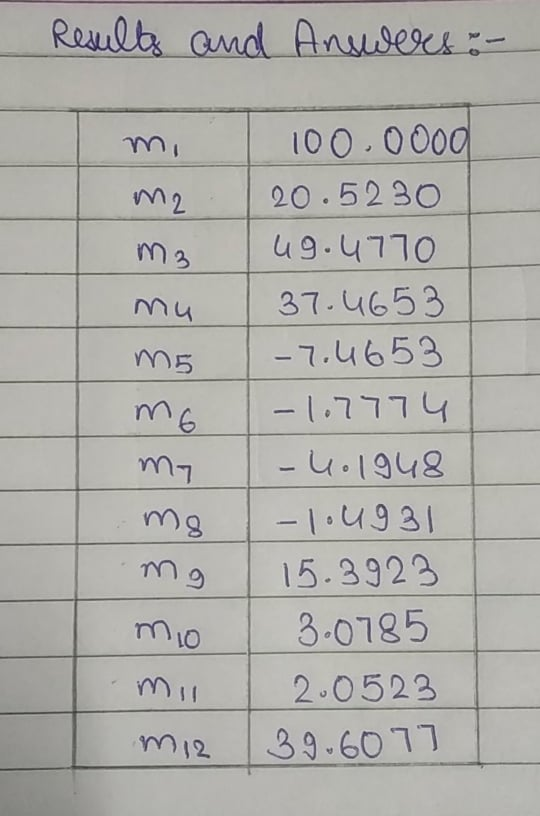 Results and Answers :-
m1 100.0000
m2 20.5230
m3 49.4770
m4 37.4653
m5 -7.4653
m6 -1.7774
m7 -4.1948
m8 -1.4931
m9 15.3923
m10 3.0785
m11 2.0523
m12 39.6077